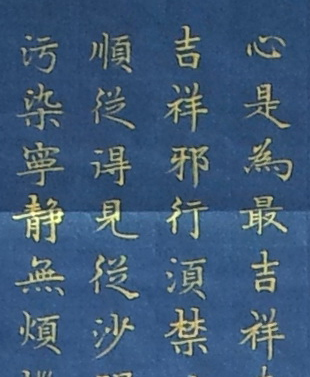 心是為最吉祥
吉祥邪行須禁
順從得見從沙
污染寧靜無煩